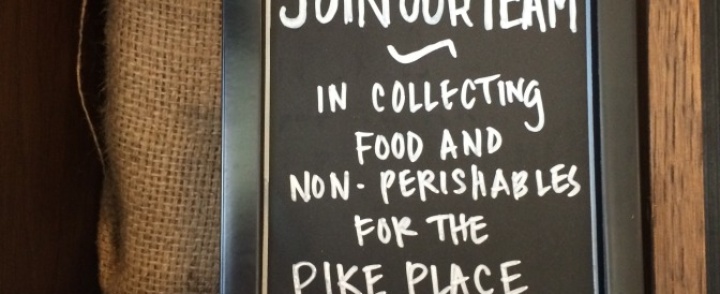 JOIN OUR TEAM
IN COLLECTING
FOOD AND
NON-PERISHABLES
FOR THE
PIKE PLACE